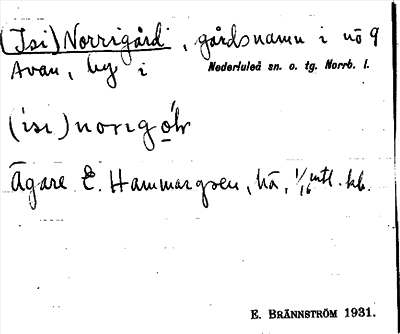 (Isi) Norrigård, gårdsnamn i nö 9
Avan, by i Nederluleå sn. o. tg. Norrb. l.
(isi) norrigo̲r
Ägare E. Hammargren, hä, 1/16 mtl. kb.
E. BRÄNNSTRÖM 1931.